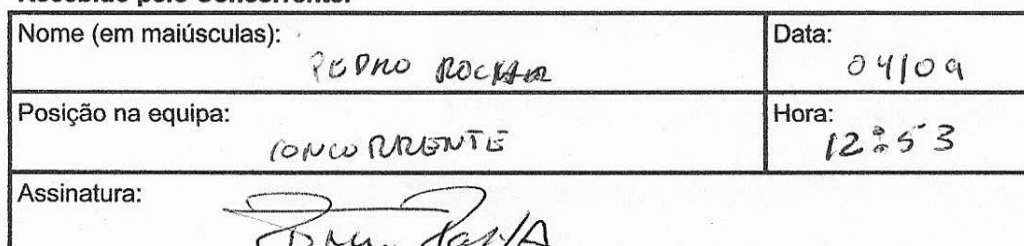 Recebido pelo Concorrente:
Nome (em maiúsculas):
PEDRO
Data:
04/09
Posição na equipa:
CONCORRENTE
Hora:
12:53
Assinatura: